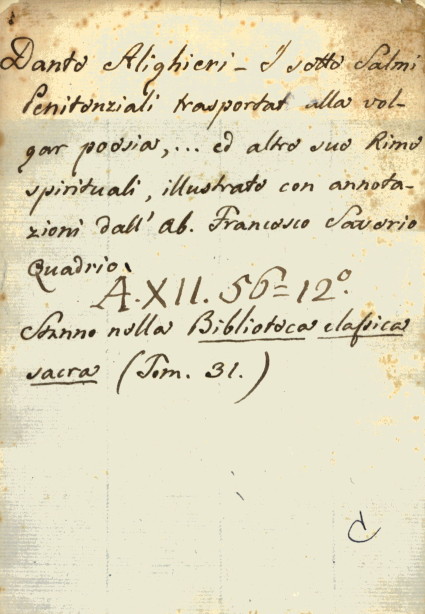 Dante Alighieri – I sette Salmi
Penitenziali trasportat alla vol-
gar poesia,... ed altre sue Rime
spirituali, illustrate con annota-
zioni dall' Ab. Francesco Saverio
Quadrio.
A.XII. 56=12°.
Stanno nella Biblioteca classica
sacra (Tom. 31.)
C